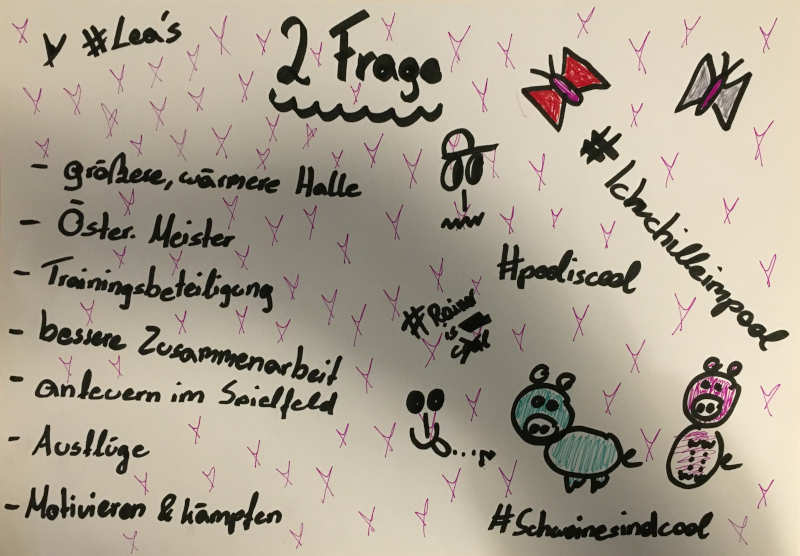 #Lea's
2 Frage
- größere, wärmere Halle
- Öster. Meister
- Trainingsbeteiligung
- bessere Zusammenarbeit
- anfeuern im Spielfeld
- Ausflüge
- Motivieren & kämpfen
#Ichwchilleimpool
#pooliscool
#Rainer
is
cool
#Schweinesindcool